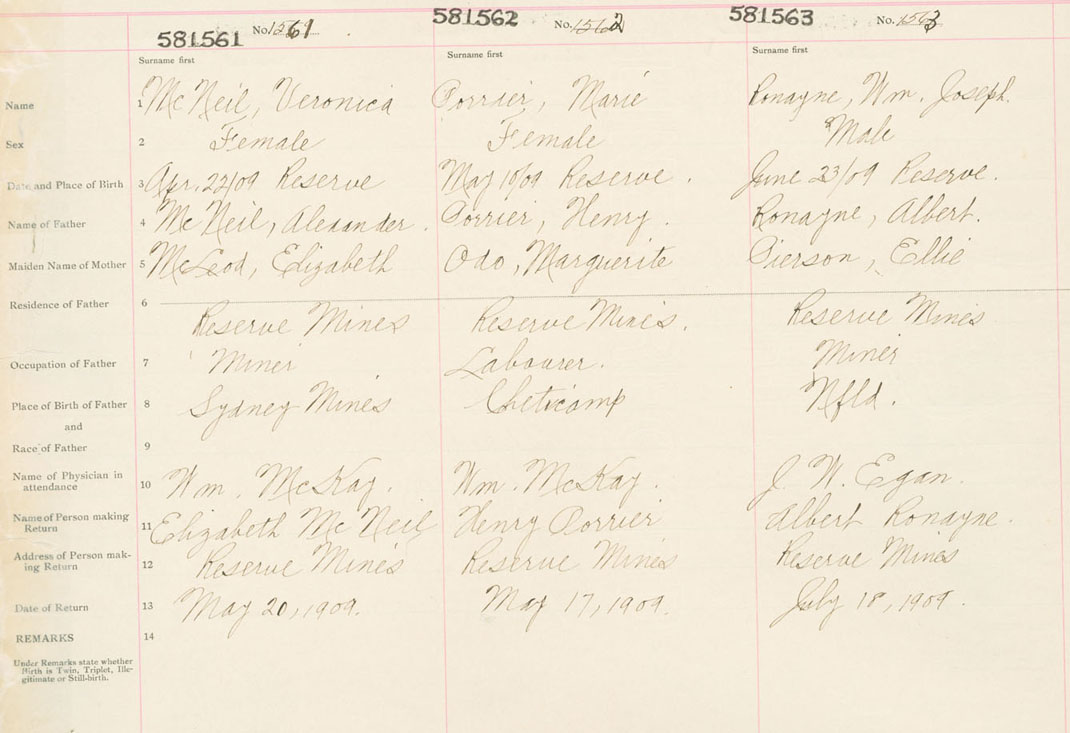 581561 No. 1561 581562 No. 1562 581563 No. 1563
Surname first Surname first Surname first
Name 1 McNeil, Veronica Porrier, Marie Ronayne, Wm. Joseph.
Sex 2 Female Female Male
Date and Place of Birth 3 Apr. 22/09 Reserve May 10/09 Reserve. June 23/09 Reserve.
Name of Father 4 McNeil, Alexander. Porrier, Henry. Ronayne, Albert.
Maiden Name of Mother 5 McLeod, Elizabeth Odo, Marguerite Pierson, Ellie
Residence of Father 6 Reserve Mines Reserve Mines. Reserve Mines
Occupation of Father 7 Miner Labourer. Miner
Place of Birth of Father 8 Sydney Mines Cheticamp Nfld.
and
Race of Father 9
Name of Physician in
attendance 10 Wm. McKay. Wm. McKay. J. W. Egan.
Name of Person making
Return 11 Elizabeth McNeil Henry Porrier Albert Ronayne.
Address of Person mak-
ing Return 12 Reserve Mines Reserve Mines Reserve Mines
Date of Return 13 May 20, 1909. May 17, 1909. July 18, 1909.
REMARKS 14
Under Remarks state whether
Birth is Twin, Triplet, Ille-
gitimate or Still-birth.